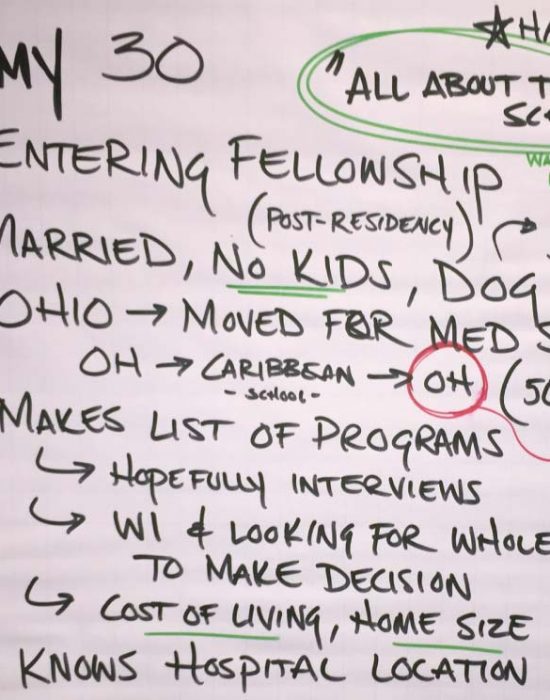 MY 30
☆HA
"ALL ABOUT T
SC
WA
ENTERING FELLOWSHIP
(POST-RESIDENCY)
MARRIED, NO KIDS, DOG
OHIO → MOVED FOR MED S
OH → CARIBBEAN → OH (50
- SCHOOL -
MAKES LIST OF PROGRAMS
↳ HOPEFULLY INTERVIEWS
↳ WI & LOOKING FOR WHOLE
TO MAKE DECISION
↳ COST OF LIVING, HOME SIZE
KNOWS HOSPITAL LOCATION